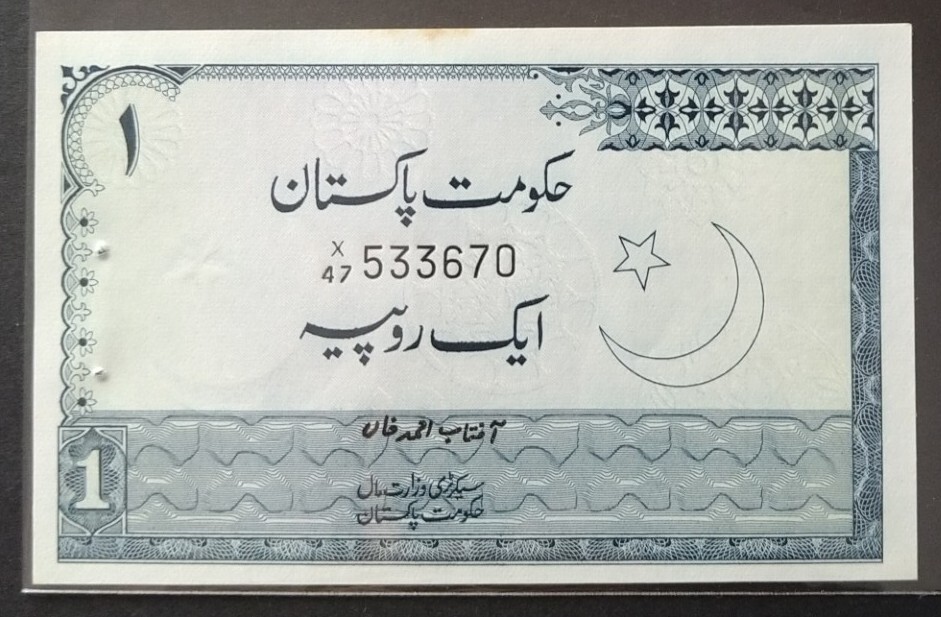 ۱
حکومت پاکستان
X
47 533670
ایک روپیہ
آفتاب احمد خاں
سیکرٹری وزارت مال
حکومت پاکستان
1